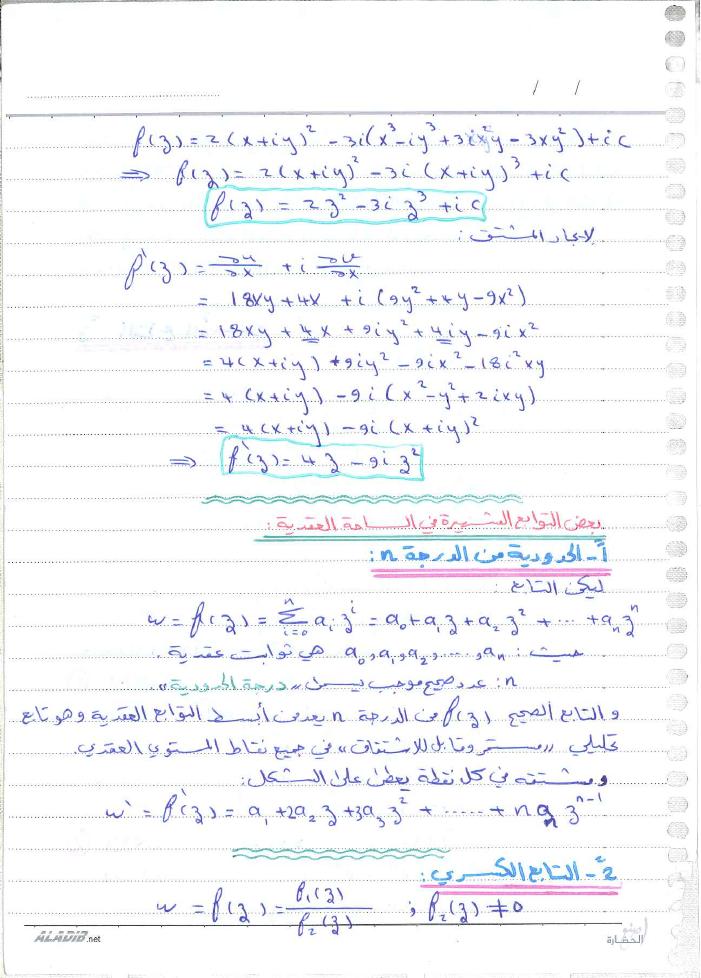 / /
f(z) = 2(x+iy)² - 3i(x³ - iy³ + 3ix²y - 3xy²) + ic
⇒ f(z) = 2(x+iy)² - 3i(x+iy)³ + ic
f(z) = 2z² - 3i z³ + ic
لايجاد المشتق:
f'(z) = ∂u/∂x + i ∂v/∂x
= 18xy + 4x + i(9y² + 4y - 9x²)
= 18xy + 4x + 9iy² + 4iy - 9ix²
= 4(x+iy) + 9iy² - 9ix² - 18i²xy
= 4(x+iy) - 9i(x² - y² + 2ixy)
= 4(x+iy) - 9i(x+iy)²
⇒ f'(z) = 4z - 9i z²
بعض التوابع الشهيرة في الساحة العقدية:
1ً- الحدودية من الدرجة n:
ليكن التابع:
w = f(z) = Σ_{i=0}^{n} aᵢ zⁱ = a₀ + a₁z + a₂z² + ... + aₙzⁿ
حيث: a₀, a₁, a₂, ..., aₙ هي ثوابت عقدية.
n: عدد صحيح موجب يسمى "درجة الحدودية".
والتابع الصحيح f(z) من الدرجة n يعد من أبسط التوابع العقدية وهو تابع
تحليلي "مستمر وقابل للاشتقاق" في جميع نقاط المستوي العقدي.
ومشتقه في كل نقطة يعطى على الشكل:
w' = f'(z) = a₁ + 2a₂z + 3a₃z² + ..... + n aₙ zⁿ⁻¹
2ً- التابع الكسري:
w = f(z) = f₁(z)/f₂(z) ; f₂(z) ≠ 0
ALADIB.net
الحضارة